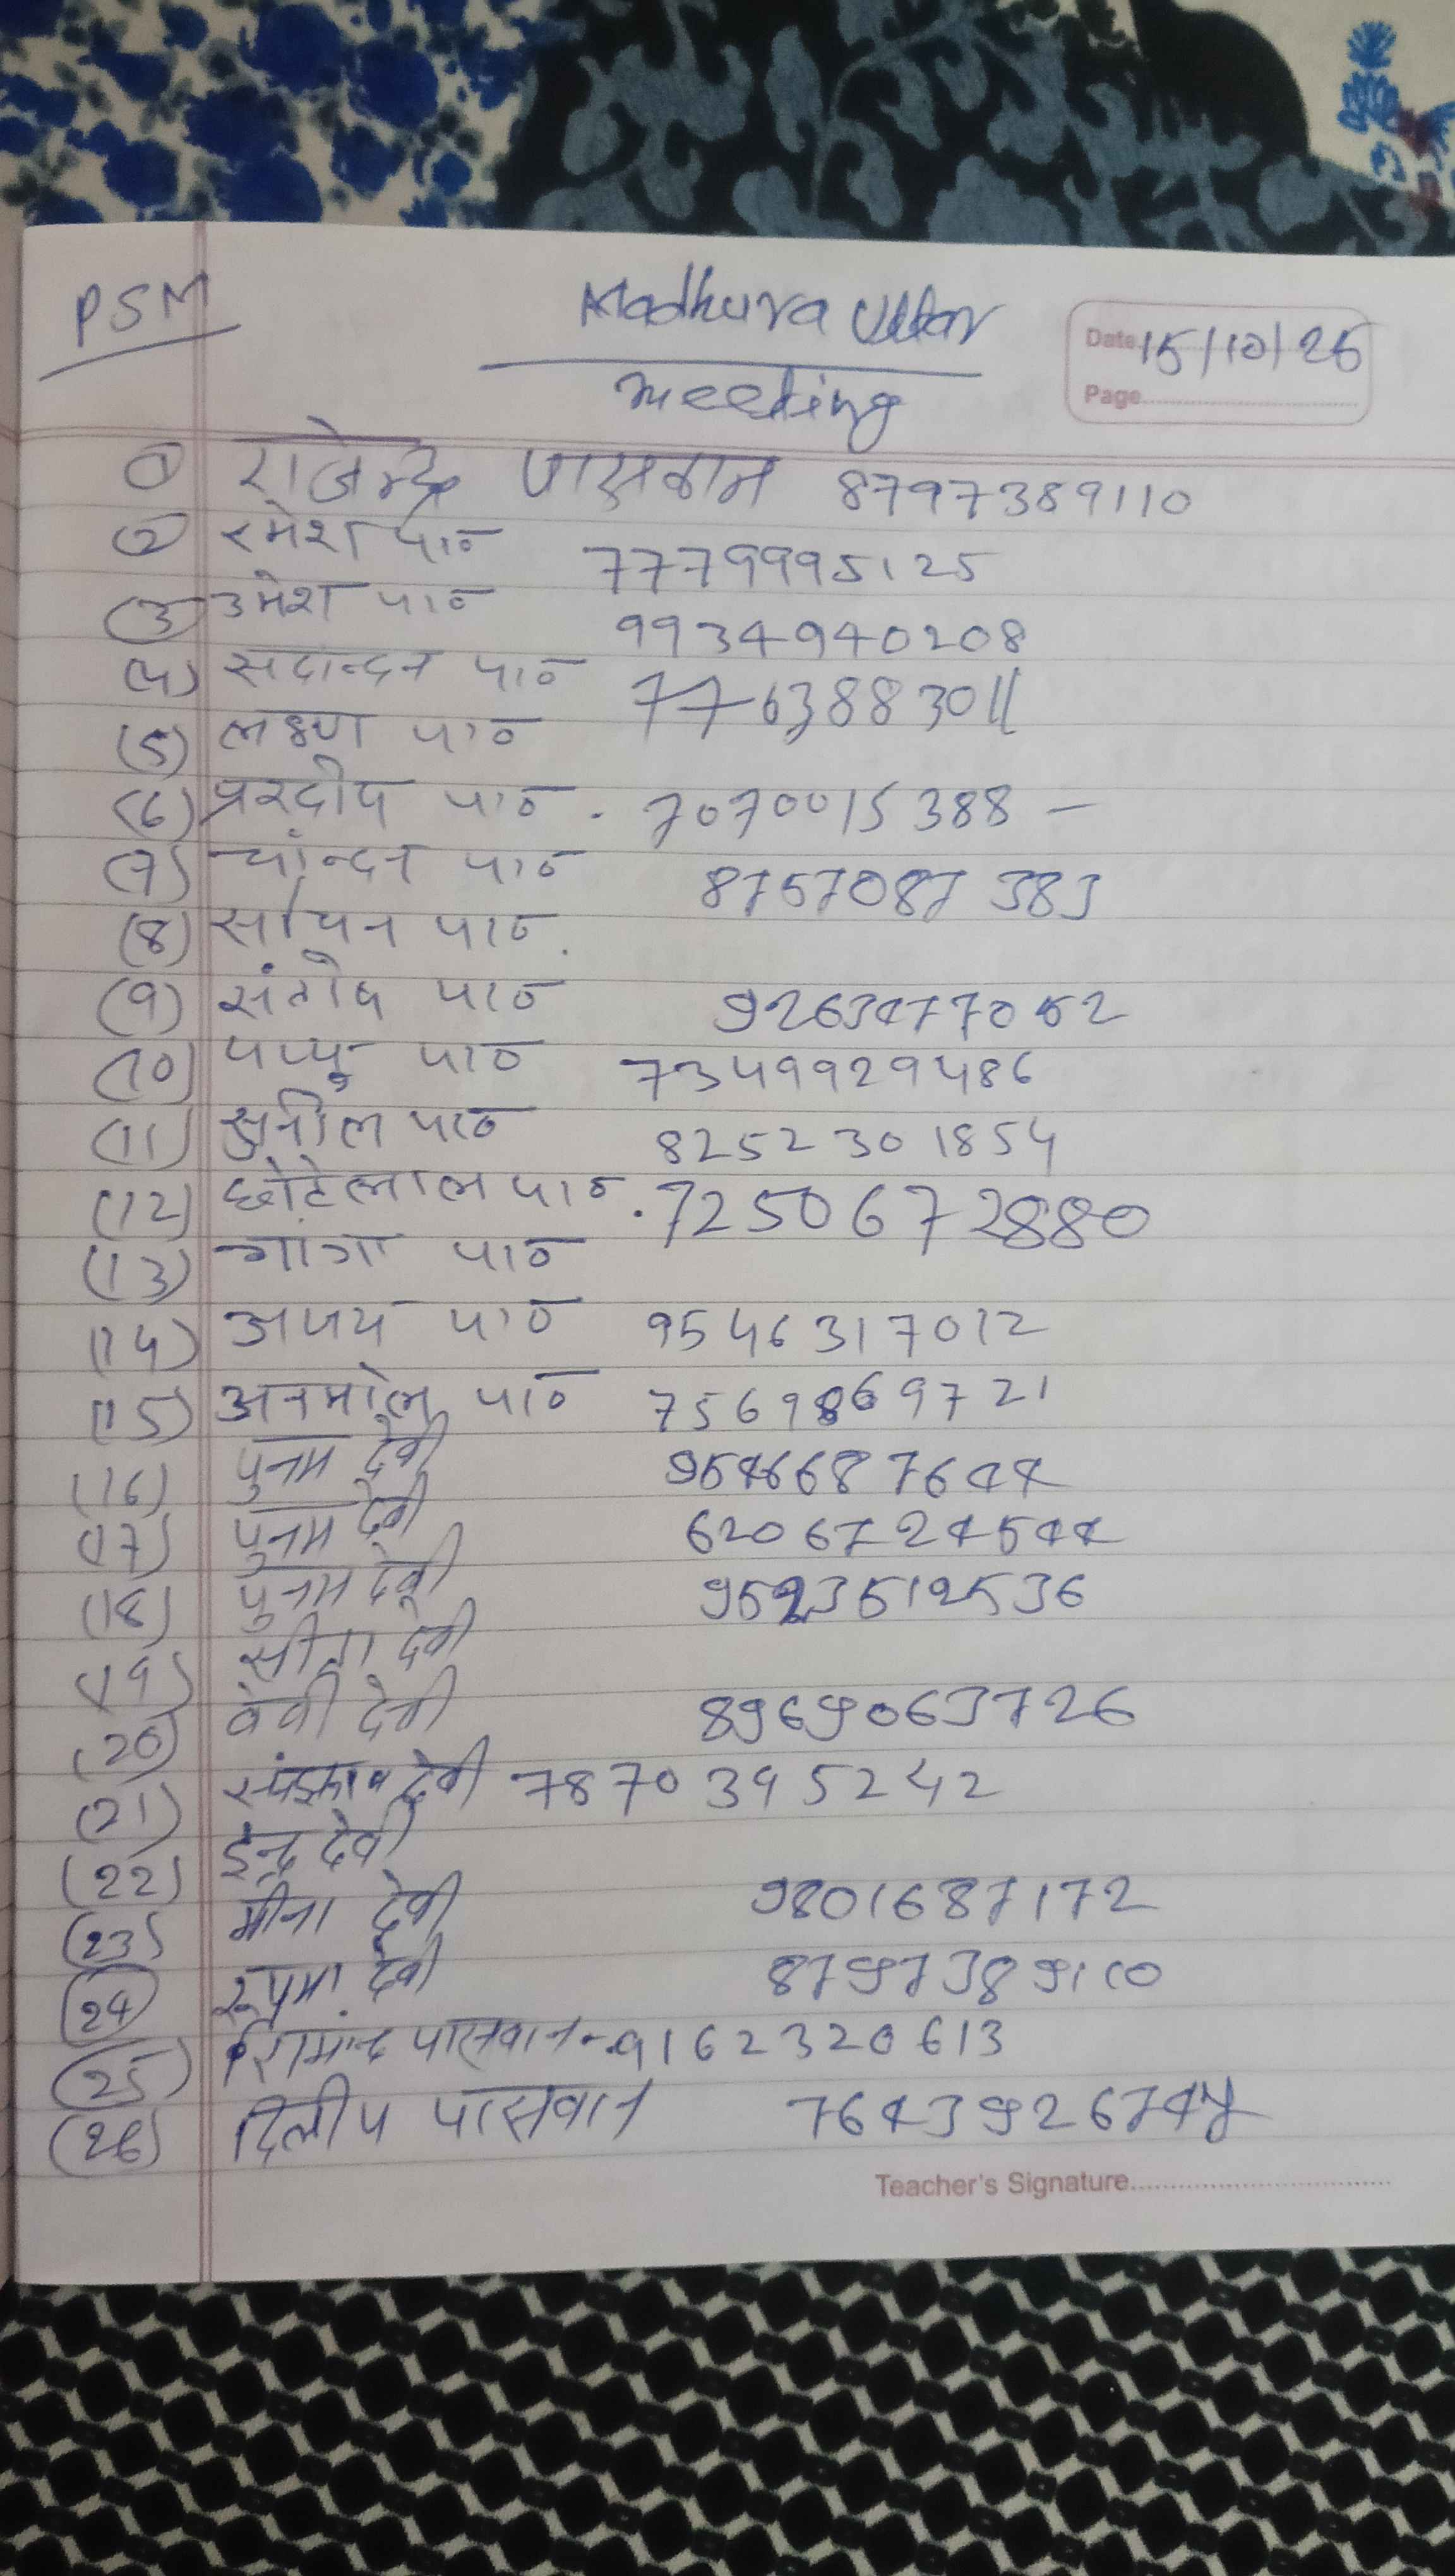 PSM
Madhura Uttar
meeting
Date 15/10/25
Page
① राजेन्द्र पासवान 8797389110
② रमेश पा० 7779995125
(3) उमेश पा० 9934940208
(4) सदानन्दन पा० 7763883011
(5) लक्ष्ण पा०
(6) प्रदीप पा० . 7070015388 -
(7) चांन्दन पा० 8757087383
(8) सचिन पा०.
(9) संतोष पा० 9263477052
(10) पप्पू पा० 7349929486
(11) सुनील पा० 8252301854
(12) छोटेलाल पा० . 7250672880
(13) गंगा पा०
(14) अजय पा० 9546317012
(15) अनमोल पा० 7569869721
(16) पुनम देवी 9546687644
(17) पुनम देवी 6206724544
(18) पुनम देवी 9523512536
(19) सीता देवी
(20) वेवी देवी 8969063726
(21) देवी 7870395242
(22) इन्द्र देवी
(23) मीना देवी 9801687172
(24) देवी 8797389110
(25) पासवान - 9162320613
(26) दिलीप पासवान 7643926747
Teacher's Signature